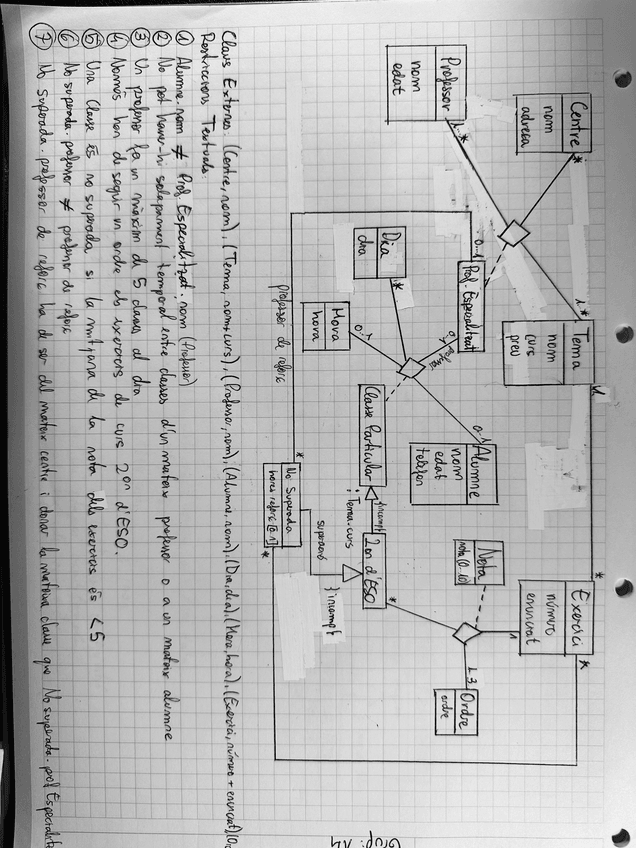 Grup: 14
Centre
nom
adresa
*
Tema
nom
curs
preu
1..*
1
Exercici
número
enunciat
*
*
1
Professor
nom
edat
1..*
Prof. Especialitzat
0..1
Alumne
nom
edat
telèfon
0..1
Nota
nota (0..10)
Ordre
ordre
1..3
Dia
dia
*
Hora
hora
0..1
Classe Particular
{incompl}
: Tema.curs
2on d'ESO
*
superació
{incompl}
No Superada
hores reforç [0..1]
*
*
professor de reforç
Claus Externes: (Centre, nom), (Tema, nom+curs), (Professor, nom), (Alumne, nom), (Dia, dia), (Hora, hora), (Exercici, número + enunciat)
Restriccions Textuals:
1 Alumne.nom ≠ Prof. Especialitzat.nom (Professor)
2 No pot haver-hi solapament temporal entre classes d'un mateix professor o a un mateix alumne
3 Un professor fa un màxim de 5 classes al dia
4 Només han de seguir un ordre els exercicis de curs 2on d'ESO.
5 Una Classe és no superada si la mitjana de la nota dels exercicis és < 5
6 No superada.professor ≠ professor de reforç
7 No superada.professor de reforç ha de ser del mateix centre i donar la mateixa classe que No superada.prof Especialitz